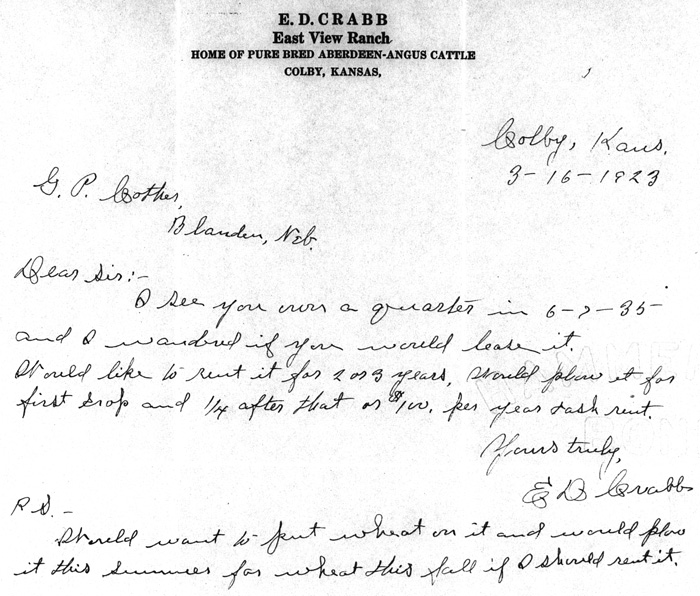 E. D. CRABB
East View Ranch
HOME OF PURE BRED ABERDEEN-ANGUS CATTLE
COLBY, KANSAS,
Colby, Kans.
3-16-1923
G. P. Cother,
Blanden, Neb.
Dear Sir:-
I see you own a quarter in 6-7-35
and I wandred if you would lease it.
Would like to rent it for 2 or 3 years. Would plow it for
first crop and 1/4 after that or $100. per year cash rent.
Yours truly,
E D Crabb
P.S. -
Would want to put wheat on it and would plow
it this summer for wheat this fall if I should rent it.